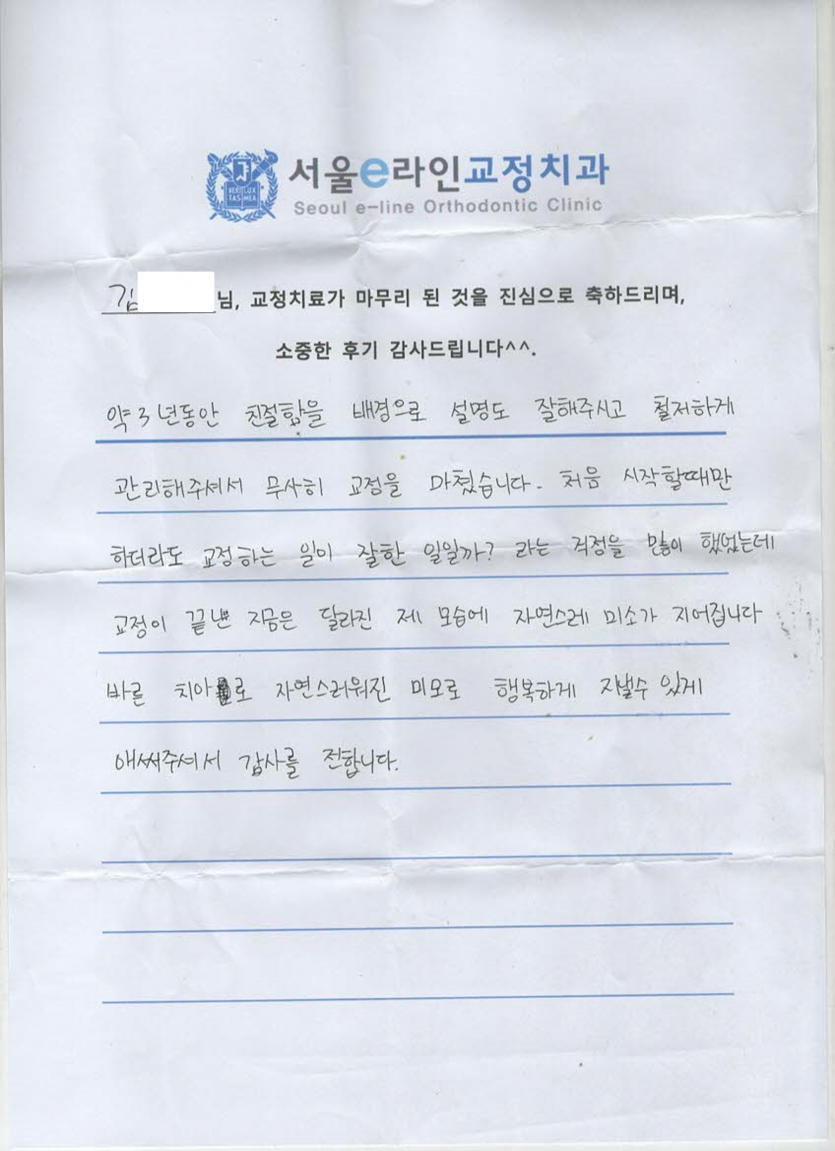 서울e라인교정치과
Seoul e-line Orthodontic Clinic
VERI LUX
TAS MEA
김 님, 교정치료가 마무리 된 것을 진심으로 축하드리며,
소중한 후기 감사드립니다^^.
약 3년동안 친절함을 배경으로 설명도 잘해주시고 철저하게
관리해주셔서 무사히 교정을 마쳤습니다. 처음 시작할때만
하더라도 교정하는 일이 잘한 일일까? 라는 걱정을 많이 했었는데
교정이 끝난 지금은 달라진 제 모습에 자연스레 미소가 지어집니다
바른 치아로 자연스러워진 미모로 행복하게 지낼수 있게
애써주셔서 감사를 전합니다.